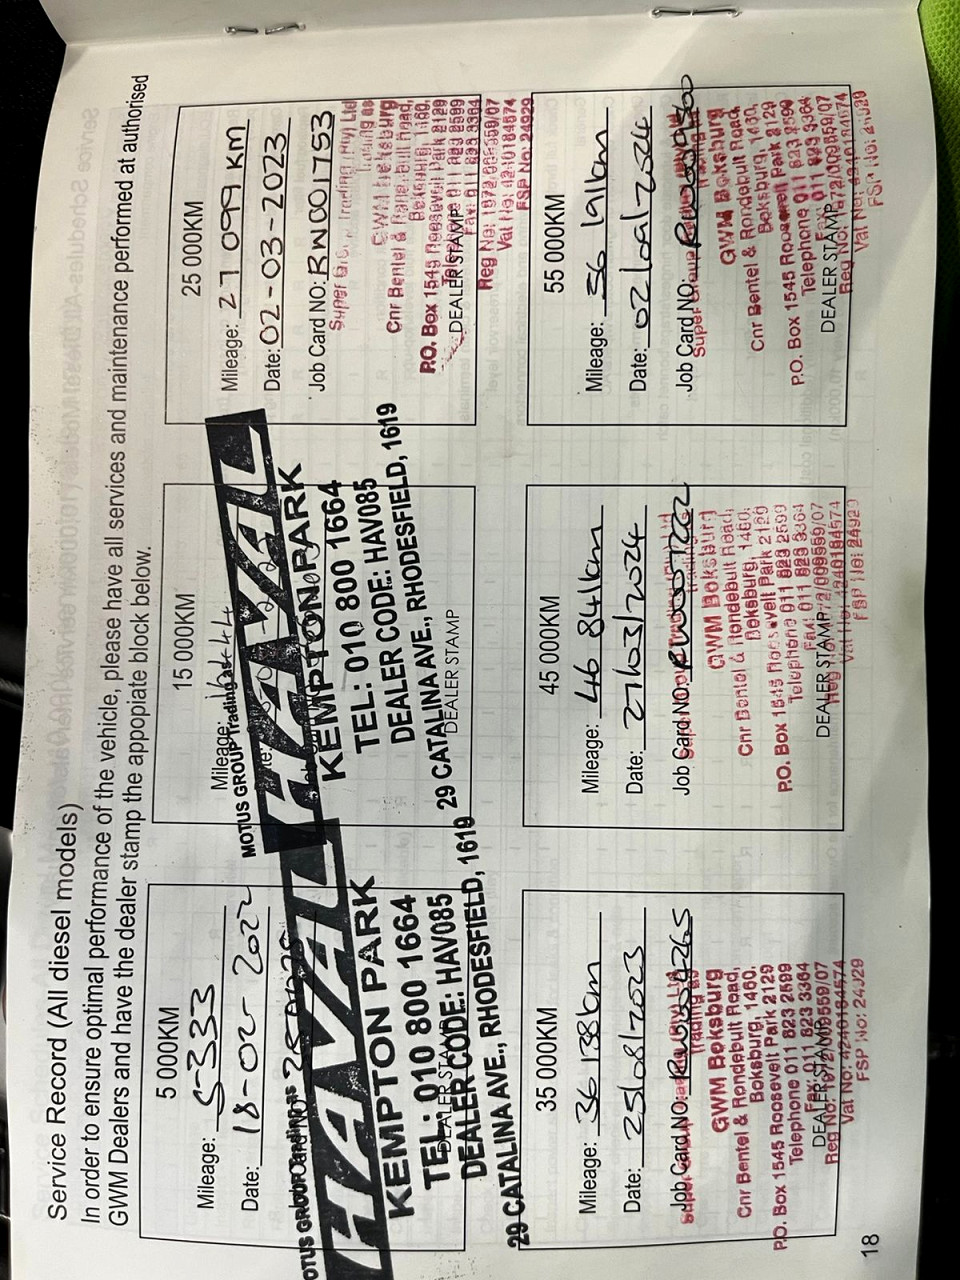 Service Record (All diesel models)
In order to ensure optimal performance of the vehicle, please have all services and maintenance performed at authorised
GWM Dealers and have the dealer stamp the appopiate block below.
5 000KM
Mileage: 5-333
Date: 18-02-2022
MOTUS GROUP Trading as
HAVAL
KEMPTON PARK
TEL: 010 800 1664
DEALER CODE: HAV085
29 CATALINA AVE., RHODESFIELD, 1619
DEALER STAMP
15 000KM
Mileage:
MOTUS GROUP Trading as
HAVAL
KEMPTON PARK
TEL: 010 800 1664
DEALER CODE: HAV085
29 CATALINA AVE., RHODESFIELD, 1619
DEALER STAMP
25 000KM
Mileage: 27 099 KM
Date: 02-03-2023
Job Card NO: RW001753
Cnr Bentel & Rondebult Road,
Boksburg, 1460,
P.O. Box 1545 Roosevelt Park 2129
Telephone 011 823 2599
Fax: 011 823 3364
DEALER STAMP
Reg No: 1972/009559/07
Vat No: 4240184574
FSP No: 24929
35 000KM
Mileage: 36 138km
Date: 25/08/2023
Job Card NO:
Trading as
GWM Boksburg
Cnr Bentel & Rondebult Road,
Boksburg, 1460,
P.O. Box 1545 Roosevelt Park 2129
Telephone 011 823 2599
Fax: 011 823 3364
DEALER STAMP
Reg No: 1972/009559/07
Vat No: 4240184574
FSP No: 24929
45 000KM
Mileage: 46 841km
Date: 27/03/2024
Job Card NO:
GWM Boksburg
Cnr Bentel & Rondebult Road,
Boksburg, 1460,
P.O. Box 1545 Roosevelt Park 2129
Telephone 011 823 2599
Fax: 011 823 3364
DEALER STAMP
Reg No: 1972/009559/07
Vat No: 4240184574
FSP No: 24929
55 000KM
Mileage: 56 191km
Date:
Job Card NO:
Super Group
GWM Boksburg
Cnr Bentel & Rondebult Road,
Boksburg, 1460,
P.O. Box 1545 Roosevelt Park 2129
Telephone 011 823 2599
Fax: 011 823 3364
DEALER STAMP
Reg No: 1972/009559/07
Vat No: 4240184574
FSP No: 24929
18